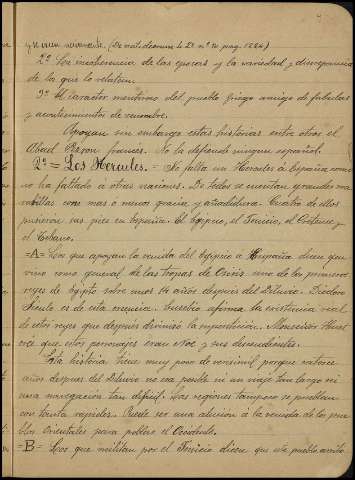 y nuevamente. (De nat. deorum l. 2º nº 14 pag. 1264)
2º La incoherencia de las epocas y la variedad y discrepancia
de los que lo relatan.
3º El caracter mentiroso del pueblo griego amigo de fabulas
y acontecimientos de renombre.
Apoyan sin embargo estas historias entre otros el
Abad francés. No la defiende ninguno español.
2º = Los Hercules. = No falta un Hercules á España como
no ha faltado á otras naciones. De todos se cuentan grandes mara
villas con mas ó menos gracia y Cuatro de ellos
pusieron sus pies en España. El Egipcio, el Fenicio, el Cretense y
el Tebano.
=A= Los que apoyan la venida del Egipcio á España dicen que
vino como general de las Tropas de Osiris uno de los primeros
reyes de Egipto sobre unos 14 años después del Diluvio. Diodoro
Siculo es de esta creencia. Eusebio afirma la existencia real
de estos reyes que después divinizó la superstición. Monseñor Huet
cree que estos personajes eran Noe y sus descendientes.
Esta historia tiene muy poco de verosimil porque catorce
años despues del Diluvio no era posible ni un viaje tan largo ni
una navegación tan dificil. Las regiones tampoco se pueblan
con tanta rapidez. Puede ser una alusion á la venida de los pue
blos orientales para poblar el Occidente.
=B= Los que militan por el Fenicio dicen que este pueblo